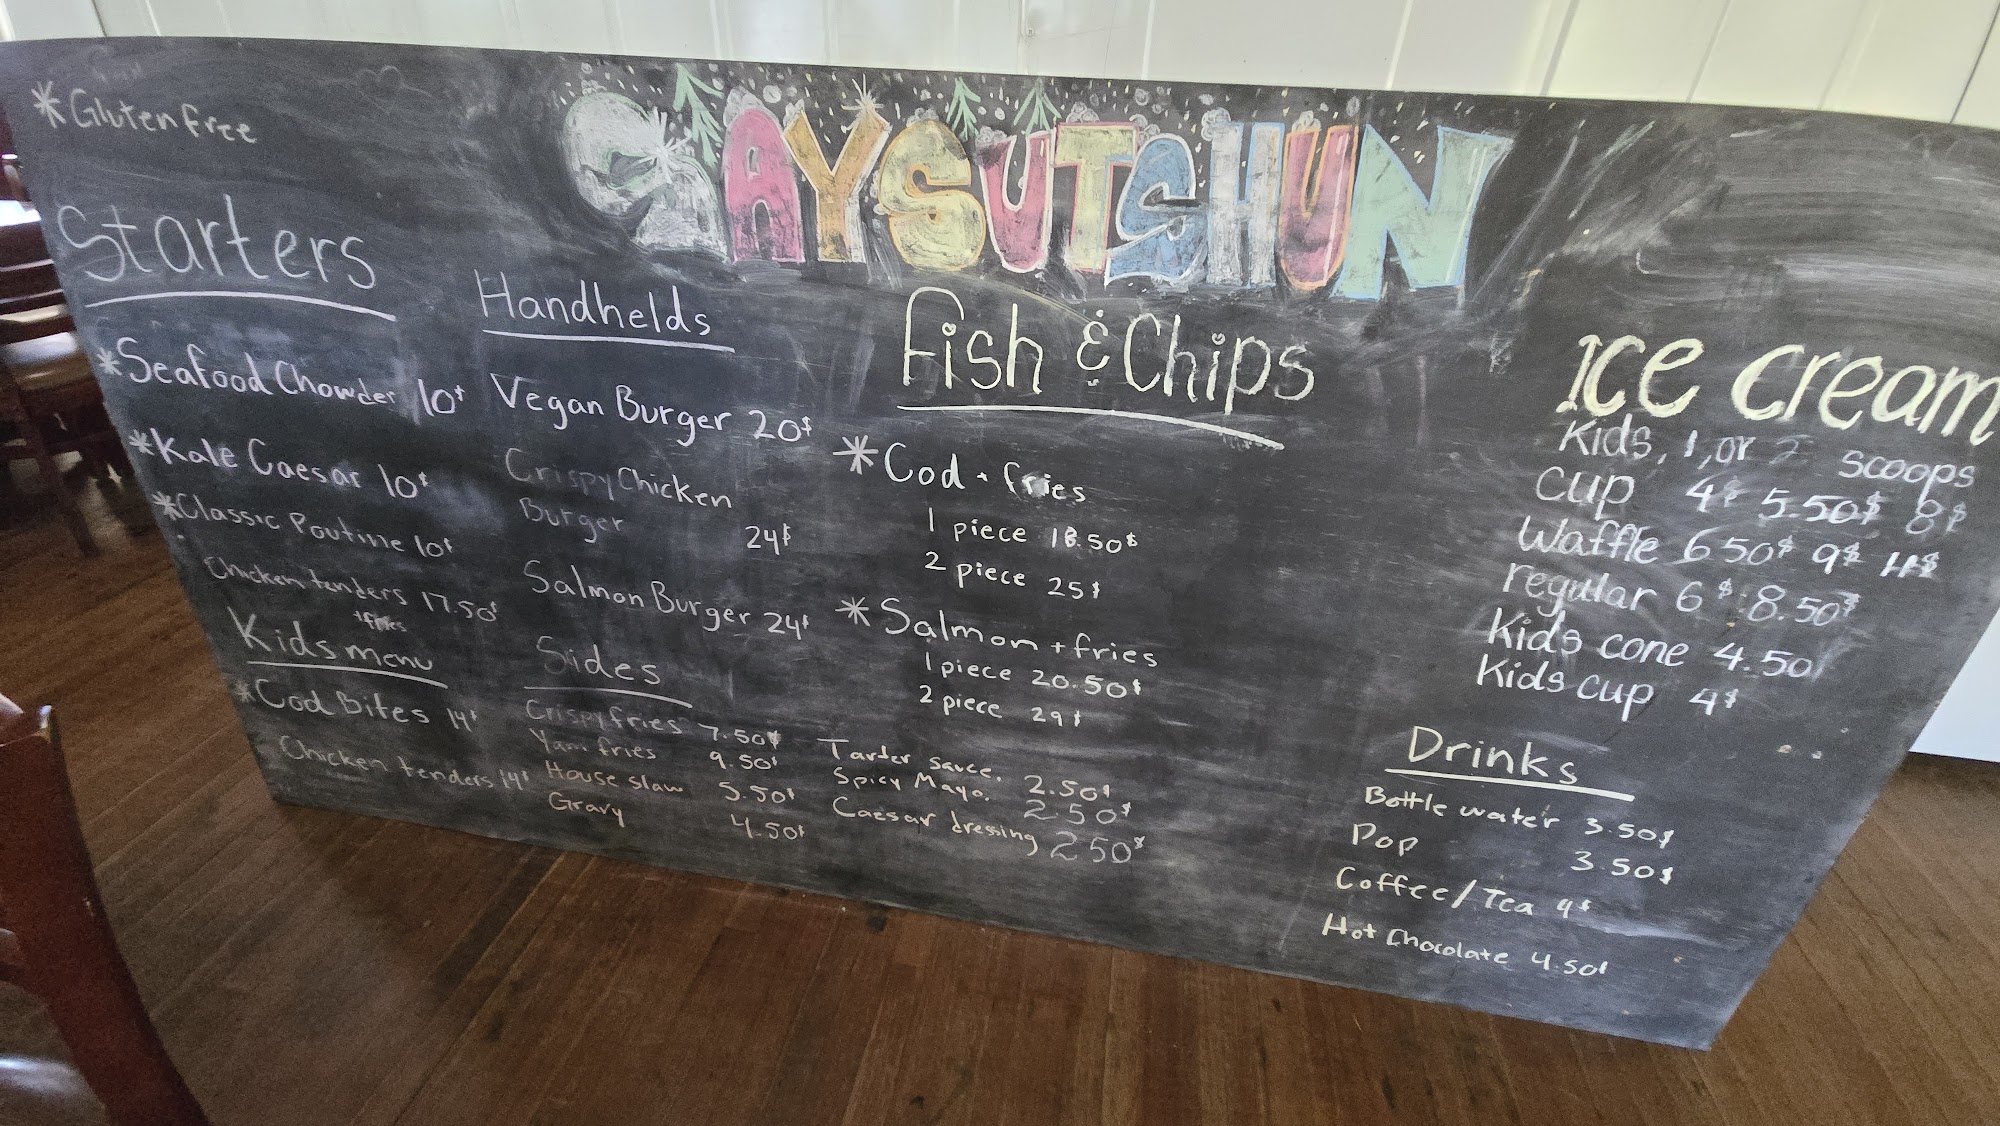 *Gluten free
SAYSUTSHUN
Starters
*Seafood Chowder 10$
*Kale Caesar 10$
*Classic Poutine 10$
Chicken tenders 17.50$
+fries
Kids menu
*Cod Bites 14$
Chicken tenders 14$
Handhelds
Vegan Burger 20$
Crispy Chicken
Burger 24$
Salmon Burger 24$
Sides
Crispy fries 7.50$
Yam fries 9.50$
House slaw 5.50$
Gravy 4.50$
Fish & Chips
*Cod + fries
1 piece 18.50$
2 piece 25$
*Salmon + fries
1 piece 20.50$
2 piece 29$
Tarder sauce. 2.50$
Spicy Mayo. 2.50$
Caesar dressing 2.50$
Ice cream
Kids, 1, or 2 scoops
Cup 4$ 5.50$ 8$
Waffle 6 50$ 9$ 11$
regular 6$ 8.50$
Kids cone 4.50
Kids cup 4$
Drinks
Bottle water 3.50$
Pop 3.50$
Coffee/Tea 4$
Hot Chocolate 4.50$